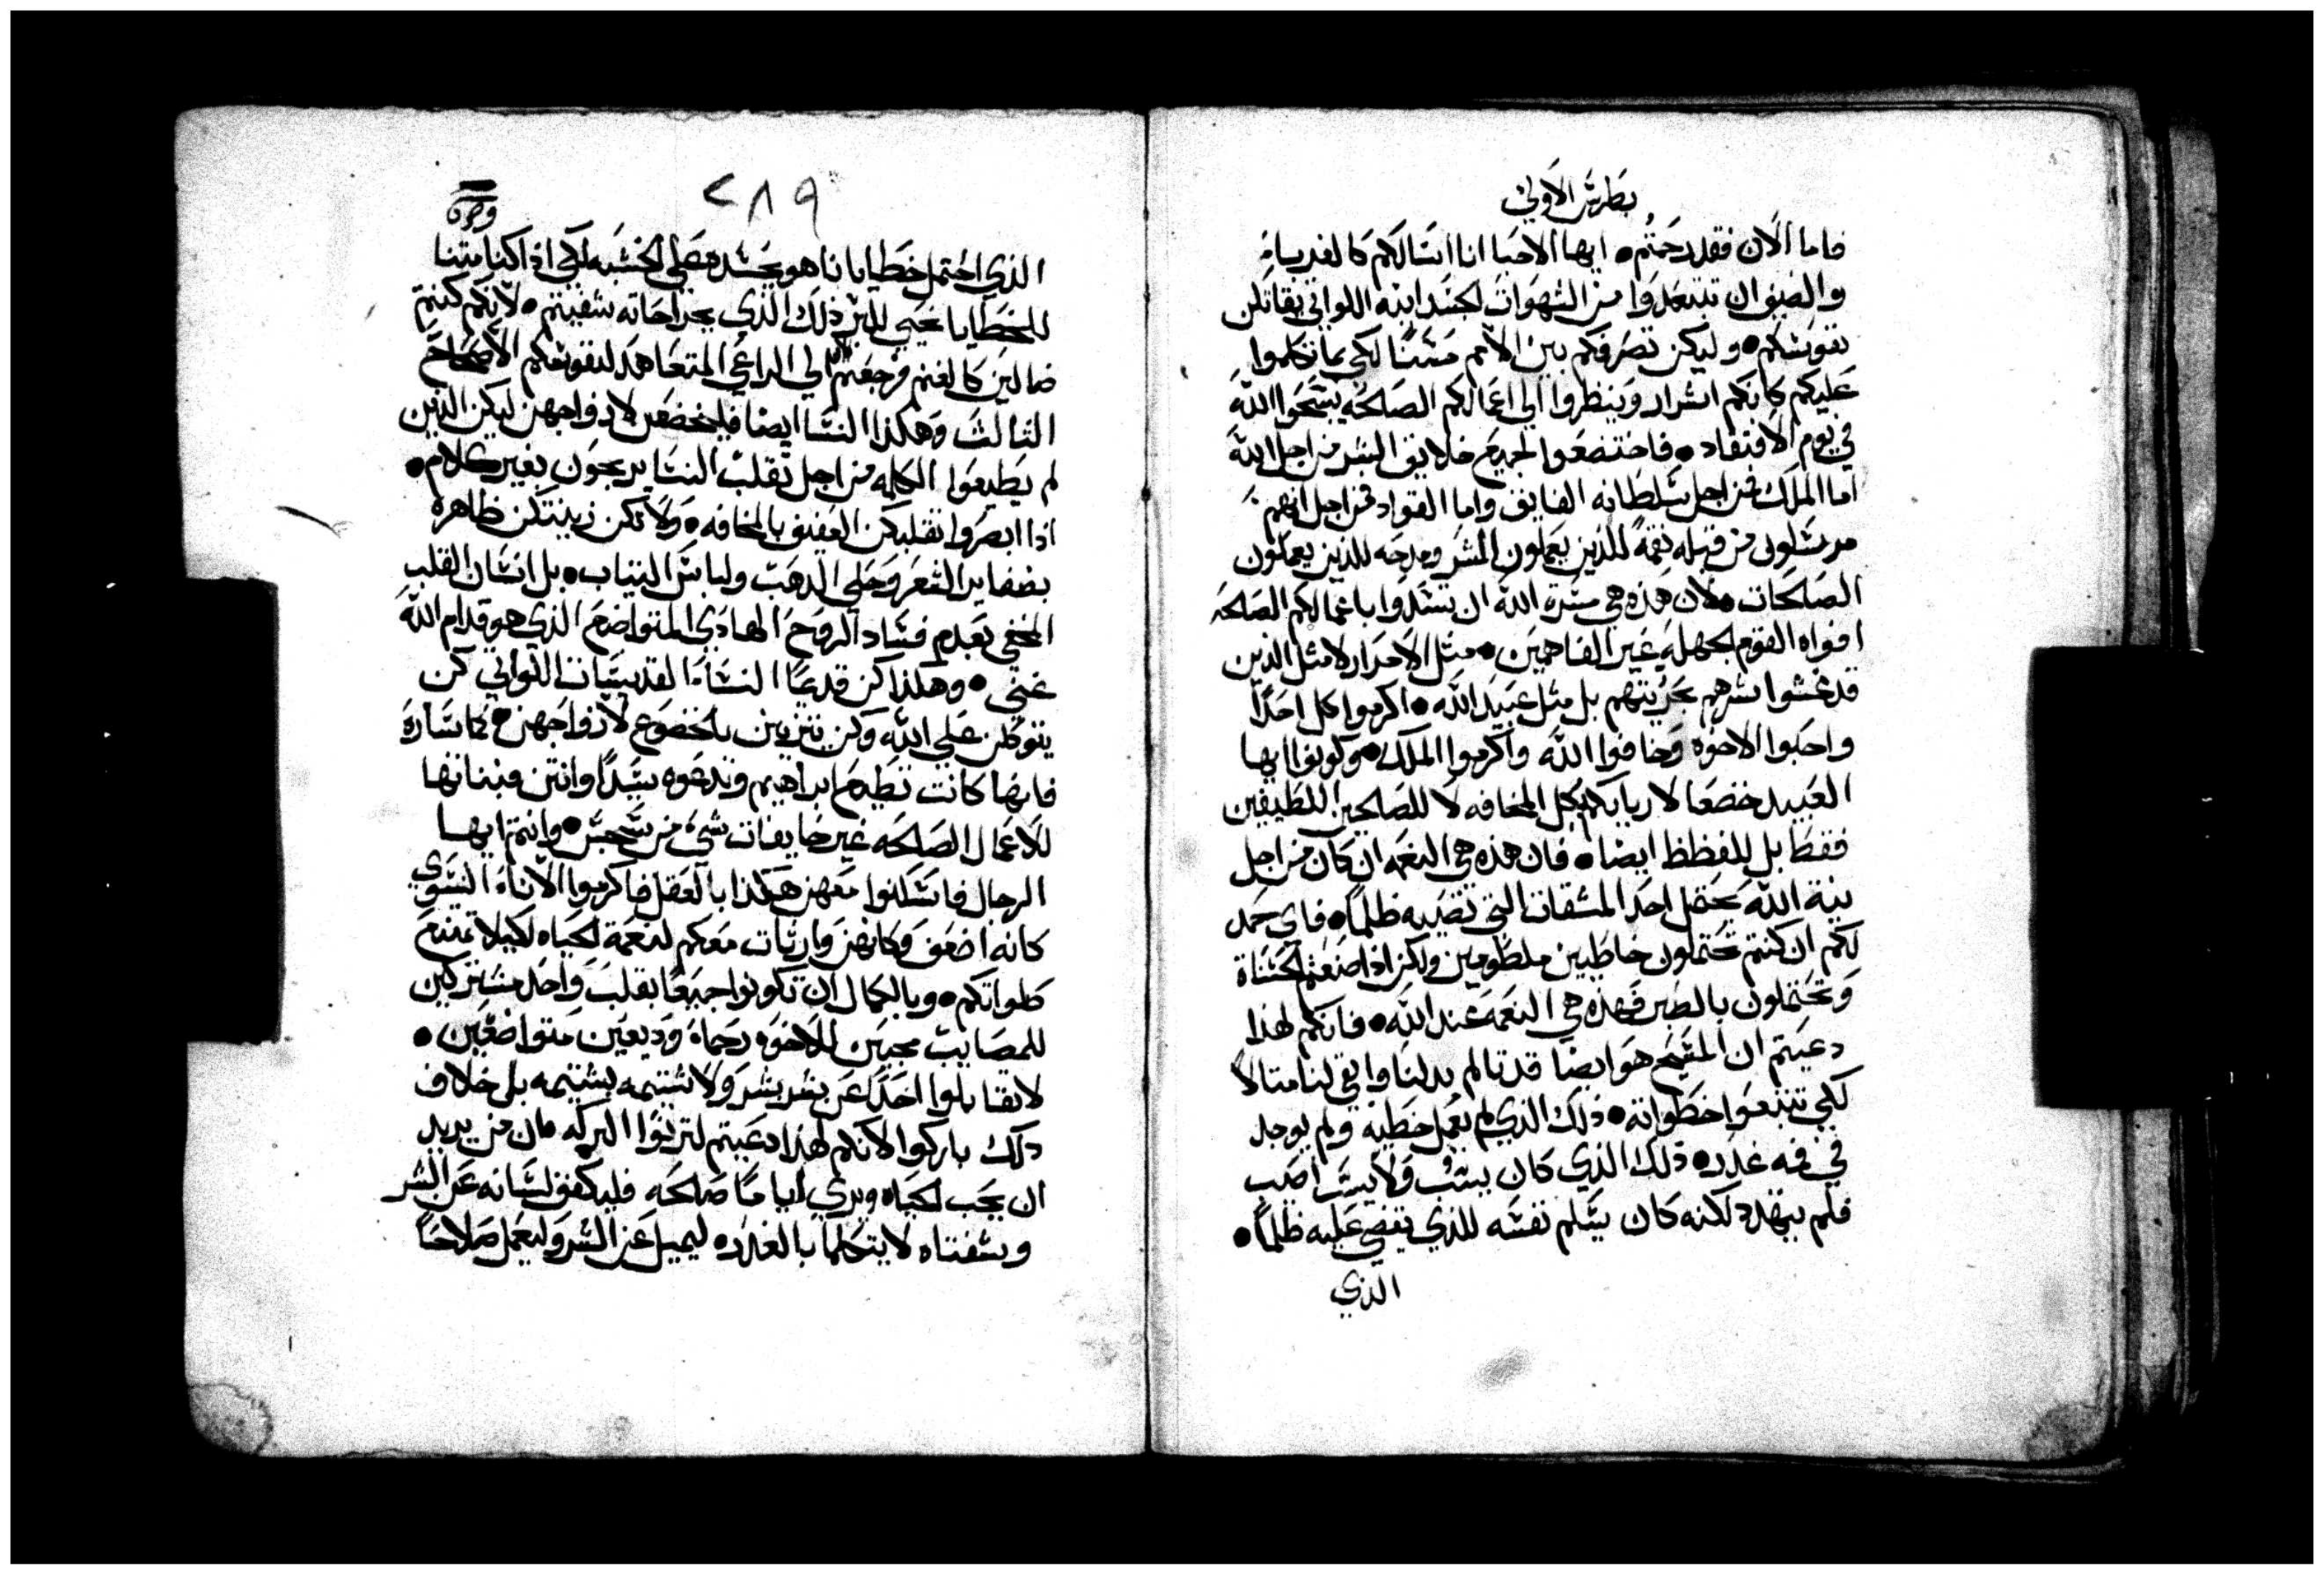 بطرس الاولي
فاما الان فقد رحمتم • ايها الاحبا انا اسالكم كالغربا
والضيوف ان تبتعدوا من الشهوات الجسدانيه اللواتي يقاتلن
نفوسكم • وليكن تصرفكم بين الامم حسنا لكي بما تكلموا
عليكم كانكم اشرار وينظروا الي اعمالكم الصالحه يسبحوا الله
في يوم الافتقاد • فاختضعوا لجميع خلايق البشر من اجل الله
اما الملك فمن اجل سلطانه الفايق واما القواد فمن اجل انهم
مرسلون من قبله نقمة للذين يعملون الشر ومدحه للذين يعملون
الصالحات • لان هذه هي مسرة الله ان تسدوا باعمالكم الصالحه
افواه القوم الجهله غير الفاهمين • مثل الاحرار لا مثل الذين
قد غشوا شرهم بحريتهم بل مثل عبيد الله • اكرموا كل احدا
واحبوا الاخوه وخافوا الله واكرموا الملك • وكونوا ايها
العبيد خضعا لاربابكم بكل المخافه لا للصالحين اللطيفين
فقط بل للفظظ ايضا • فان هذه هي النعمه ان كان من اجل
نية الله يحتمل احد المشقات التي تصيبه ظلما • فاي حمد
لكم ان كنتم تحتملون خاطيين ملطومين ولكن اذا صنعتم الحسناة
وتحتملون بالصبر فهذه هي النعمه عند الله • فانكم لهذا
دعيتم ان المسيح هو ايضا قد تالم بدلنا وابقي لنا مثالا
لكي تتبعوا خطواته • ذلك الذي لم يعمل خطية ولم يوجد
في فمه غدر • ذلك الذي كان يسب ولا يسب اصيب
فلم يتهدد لكنه كان يسلم نفسه للذي يقضي عليه ظلما •
الذي
٢٨٩
الذي احتمل خطايانا هو بجسده علي الخشبه لكي اذا كنا متنا
للخطايا نحيي للبر ذلك الذي بجراحاته شفيتم • لانكم كنتم
ضالين كالغنم فرجعتم الي الراعي المتعاهد لنفوسكم الاصحاح
الثالث وهكذا النسا ايضا فليخضعن لازواجهن ليكن الذين
لم يطيعوا الكلمه من اجل تقلب النسا يربحون بغير كلام •
اذا ابصروا تقلبكن العفيف بالمخافه • ولا تكن زينتكن ظاهره
بضفاير الشعر وحلي الدهب ولباس التياب • بل انسان القلب
المخفي بعدم فساد الروح الهادي المتواضع الذي هو قدام الله
غني • وهكذا كن قديما النساء القديسات اللواتي كن
يتوكلن علي الله وكن يتزين بالخضوع لازواجهن • كما ساره
فانها كانت تطيع ابراهيم وتدعوه سيدا وانتن فبناتها
للاعمال الصالحه غير خايفات شيء من سجس • وانتم ايها
الرجال فاسكنوا معهن هكذا بالعقل فاكرموا الاناء النسوي
كانه اضعف وكانهن وارثات معكم لنعمة الحياه لكيلا تمتنع
صلواتكم • وبالكمال ان تكونوا جميعا بقلب واحد مشتركين
للمصايب محبين للاخوه رحماء وديعين متواضعين •
لا تقابلوا احدا عن بشر بشر ولا شتيمه بشتيمه بل خلاف
دلك باركوا لانكم لهذا دعيتم لترثوا البركه • ان من يريد
ان يحب الحياه ويري اياما صالحه فليكفف لسانه عن الشر
وشفتاه لا يتكلما بالغدر • ليميل عن الشر وليعمل صلاحا